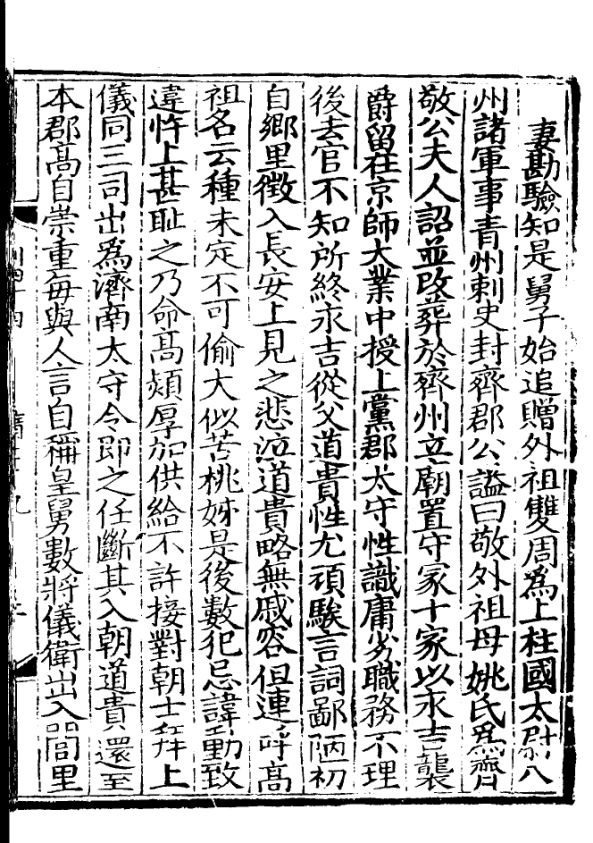 妻勘驗知是舅子始追贈外祖雙周爲上柱國太尉八
州諸軍事青州刺史封齊郡公謚曰敬外祖母姚氏爲齊
敬公夫人詔並改葬於齊州立廟置守冢十家以永吉襲
爵留在京師大業中授上黨郡太守性識庸劣職務不理
後去官不知所終永吉從父道貴性尤頑騃言詞鄙陋初
自鄉里徵入長安上見之悲泣道貴略無戚容但連呼高
祖名云種未定不可偷大似苦桃姊是後數犯忌諱動致
違忤上甚恥之乃命高熲厚加供給不許接對朝士拜上
儀同三司出爲濟南太守令即之任斷其入朝道貴還至
本郡高自崇重每與人言自稱皇舅數將儀衛出入閭里